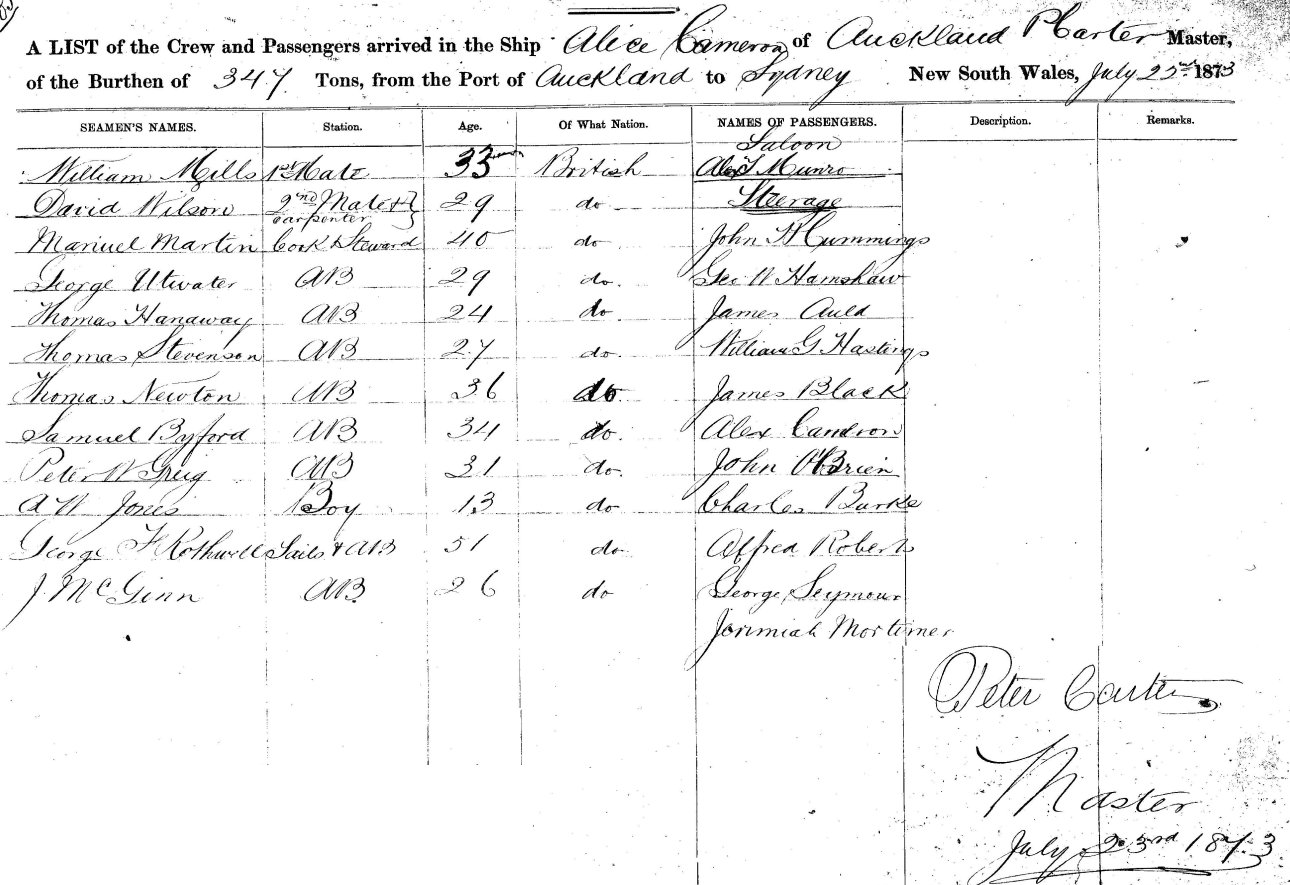 A LIST of the Crew and Passengers arrived in the Ship Alice Cameron of Auckland P Carter Master,
of the Burthen of 347 Tons, from the Port of Auckland to Sydney New South Wales, July 1873
SEAMEN'S NAMES. Station. Age. Of What Nation. NAMES OF PASSENGERS. Description. Remarks.
Saloon
William Mills 1st Mate 33 British Munro
David Wilson 2nd Mate & 29 do Steerage
carpenter
Manuel Martin Cook & Steward 40 do John H Cummings
George Utwater AB 29 do. Geo W Hamshaw
Thomas Hanaway AB 24 do. James Auld
Thomas Stevenson AB 27 do. William G Hastings
Thomas Newton AB 36 do James Black
Samuel Byford AB 34 do. Alex Cameron
Peter W Greig AB 31 do. John O'Brien
A W Jones Boy 13 do Charles Burke
George F Rothwell Sails & AB 51 do Alfred Roberts
J McGinn AB 26 do George Seymour
Jerimiah Mortimer
Peter Carter
Master
July 23rd 1873